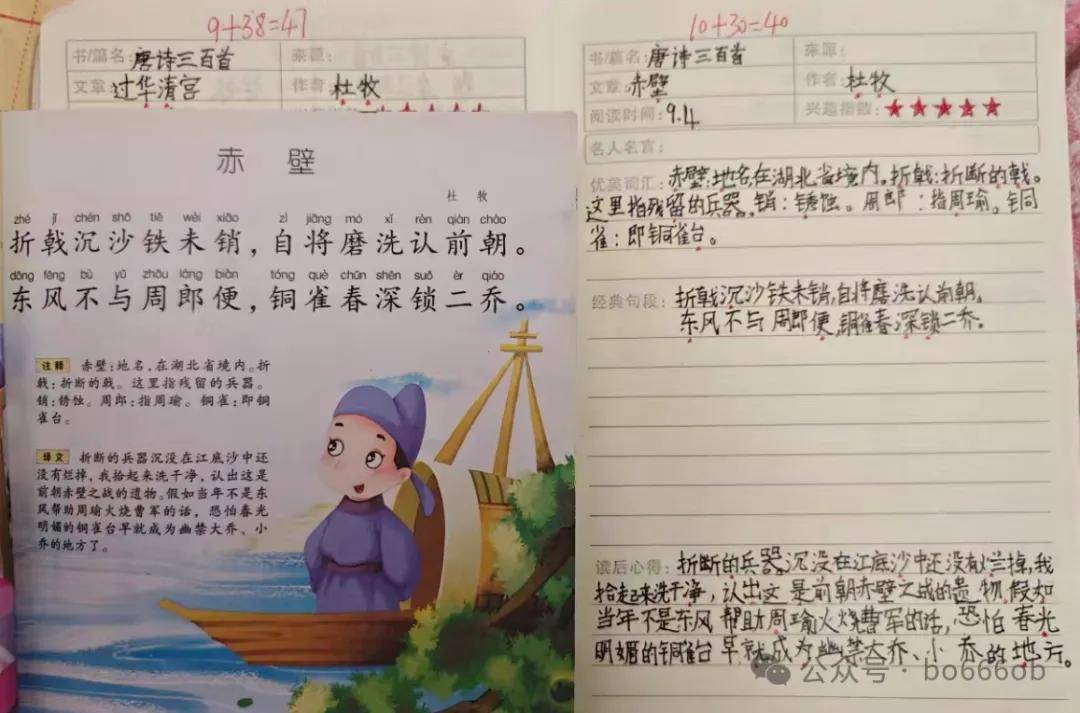 9+38=47
书/篇名:唐诗三百首 来源:
文章:过华清宫 作者:杜牧
赤壁
杜牧
zhé jǐ chén shā tiě wèi xiāo zì jiāng mó xǐ rèn qián cháo
折戟沉沙铁未销，自将磨洗认前朝。
dōng fēng bù yǔ zhōu láng biàn tóng què chūn shēn suǒ èr qiáo
东风不与周郎便，铜雀春深锁二乔。
注释 赤壁:地名,在湖北省境内。折
戟:折断的戟。这里指残留的兵器。
销:锈蚀。周郎:指周瑜。铜雀:即铜
雀台。
译文 折断的兵器沉没在江底沙中还
没有烂掉,我拾起来洗干净,认出这是
前朝赤壁之战的遗物。假如当年不是东
风帮助周瑜火烧曹军的话,恐怕春光
明媚的铜雀台早就成为幽禁大乔、小
乔的地方了。
10+30=40
书/篇名:唐诗三百首 来源:
文章:赤壁 作者:杜牧
阅读时间:9.4 兴趣指数:★★★★★
名人名言:
优美词汇:赤壁:地名,在湖北省境内。折戟:折断的戟。
这里指残留的兵器。销:锈蚀。周郎:指周瑜。铜
雀:即铜雀台。
经典句段:折戟沉沙铁未销,自将磨洗认前朝。
东风不与周郎便,铜雀春深锁二乔。
读后心得:折断的兵器沉没在江底沙中还没有烂掉,我
拾起来洗干净,认出这是前朝赤壁之战的贵物,假如
当年不是东风帮助周瑜火烧曹军的话,恐怕春光
明媚的铜雀台早就成为幽禁大乔、小乔的地方。
公众号·bo666ob